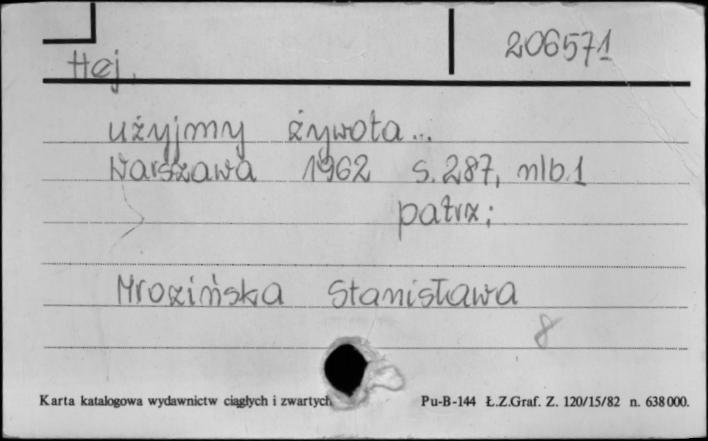 206571
Hej,
użyjmy żywota...
Warszawa 1962 s. 287, nlb. 1
patrz:
Mrozińska Stanisława
8
Karta katalogowa wydawnictw ciągłych i zwartych Pu-B-144 Ł.Z.Graf. Z. 120/15/82 n. 638 000.